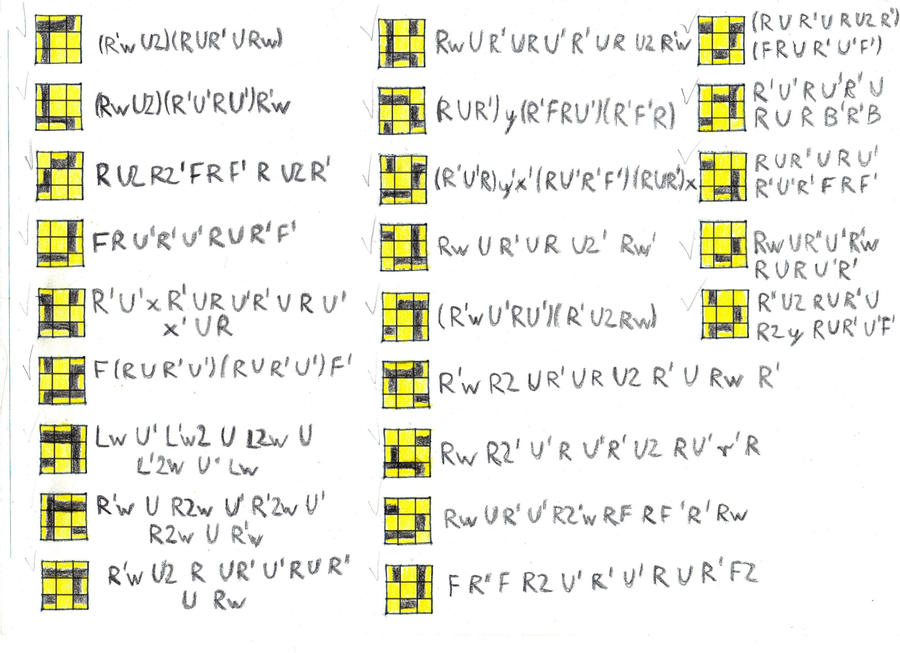 (R'w U2)(R U R' U Rw)
(Rw U2)(R' U' R U')R'w
R U2 R2' F R F' R U2 R'
F R U' R' U' R U R' F'
R' U' x R' U R U' R' U R U'
x' U R
F (R U R' U')(R U R' U') F'
Lw U' L'w2 U L2w U
L'2w U' Lw
R'w U R2w U' R'2w U'
R2w U R'w
R'w U2 R U R' U' R U R''
U Rw
Rw U R' U R U' R' U R U2 R'w
(R U R') y (R' F R U')(R' F' R)
(R' U' R) y'x' (R U' R' F')(R U R')x
Rw U R' U R U2' Rw'
(R'w U' R U')(R' U2 Rw)
R'w R2 U R' U R U2 R' U Rw R'
Rw R2' U' R U' R' U2 R U' r' R
Rw U R' U' R2'w R F R F' R' Rw
F R'' F R2 U' R' U' R U R' F2
(R U R' U R U2 R')
(F R U R' U' F')
R' U' R U' R' U
R U R B' R' B
R U R' U R U'
R' U' R' F R F'
Rw U R'' U' R'w
R U R U' R'
R'' U2 R U R' U
R2 y R U R' U' F'